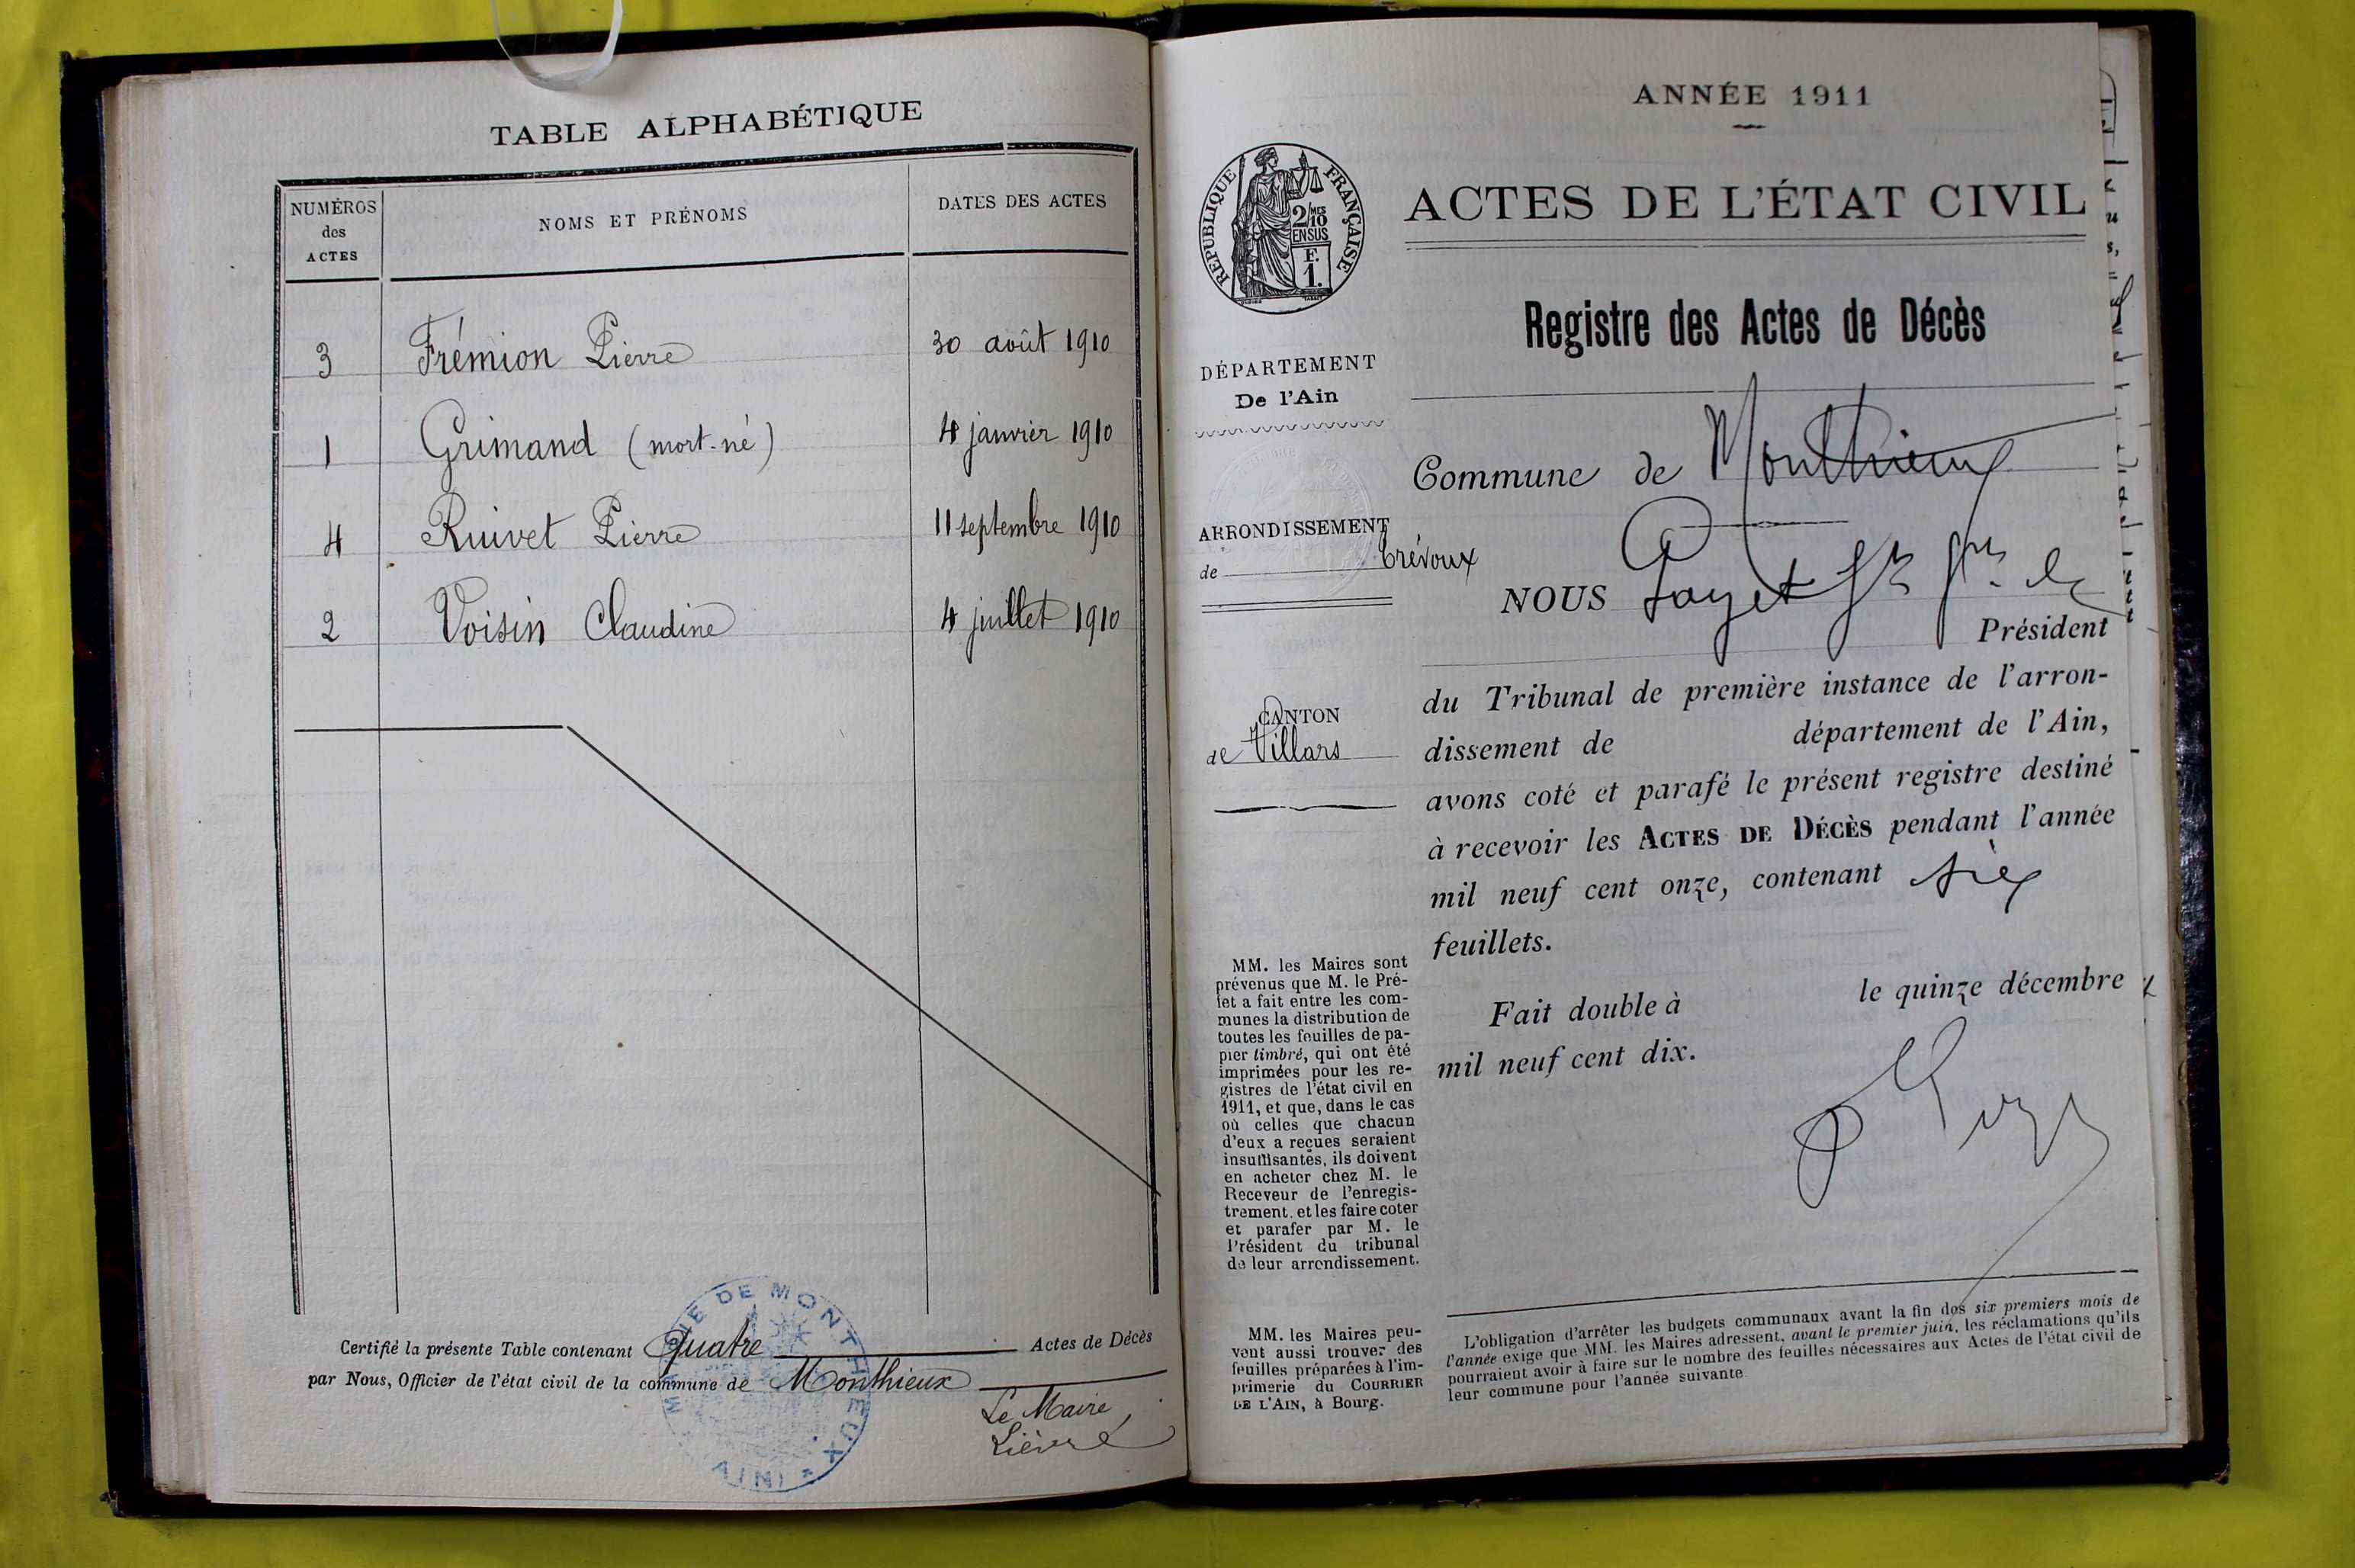 TABLE ALPHABÉTIQUE
NUMÉROS des ACTES NOMS ET PRÉNOMS DATES DES ACTES
3 Frémion Pierre 30 août 1910
1 Grimand (mort-né) 4 janvier 1910
4 Ruivet Pierre 11 septembre 1910
2 Voisin Claudine 4 juillet 1910
Certifié la présente Table contenant Quatre Actes de Décès
par Nous, Officier de l'état civil de la commune de Monthieux
Le Maire,
Lièvre
MAIRIE DE MONTHIEUX * (AIN)
ANNÉE 1911
RÉPUBLIQUE FRANÇAISE
2/10 MES
EN SUS
F.
1.
ACTES DE L'ÉTAT CIVIL
Registre des Actes de Décès
DÉPARTEMENT
De l'Ain
ARRONDISSEMENT
de Trévoux
CANTON
de Villars
MM. les Maires sont
prévenus que M. le Pré-
fet a fait entre les com-
munes la distribution de
toutes les feuilles de pa-
pier timbré, qui ont été
imprimées pour les re-
gistres de l'état civil en
1911, et que, dans le cas
où celles que chacun
d'eux a reçues seraient
insuffisantes, ils doivent
en acheter chez M. le
Receveur de l'enregis-
trement, et les faire coter
et parafer par M. le
Président du tribunal
de leur arrondissement.
MM. les Maires peu-
vent aussi trouver des
feuilles préparées à l'im-
primerie du COURRIER
DE L'AIN, à Bourg.
Commune de Monthieux
NOUS Payet
Président
du Tribunal de première instance de l'arron-
dissement de département de l'Ain,
avons coté et parafé le présent registre destiné
à recevoir les ACTES DE DÉCÈS pendant l'année
mil neuf cent onze, contenant six
feuillets.
Fait double à le quinze décembre
mil neuf cent dix.
L'obligation d'arrêter les budgets communaux avant la fin des six premiers mois de
l'année exige que MM. les Maires adressent, avant le premier juin, les réclamations qu'ils
pourraient avoir à faire sur le nombre des feuilles nécessaires aux Actes de l'état civil de
leur commune pour l'année suivante